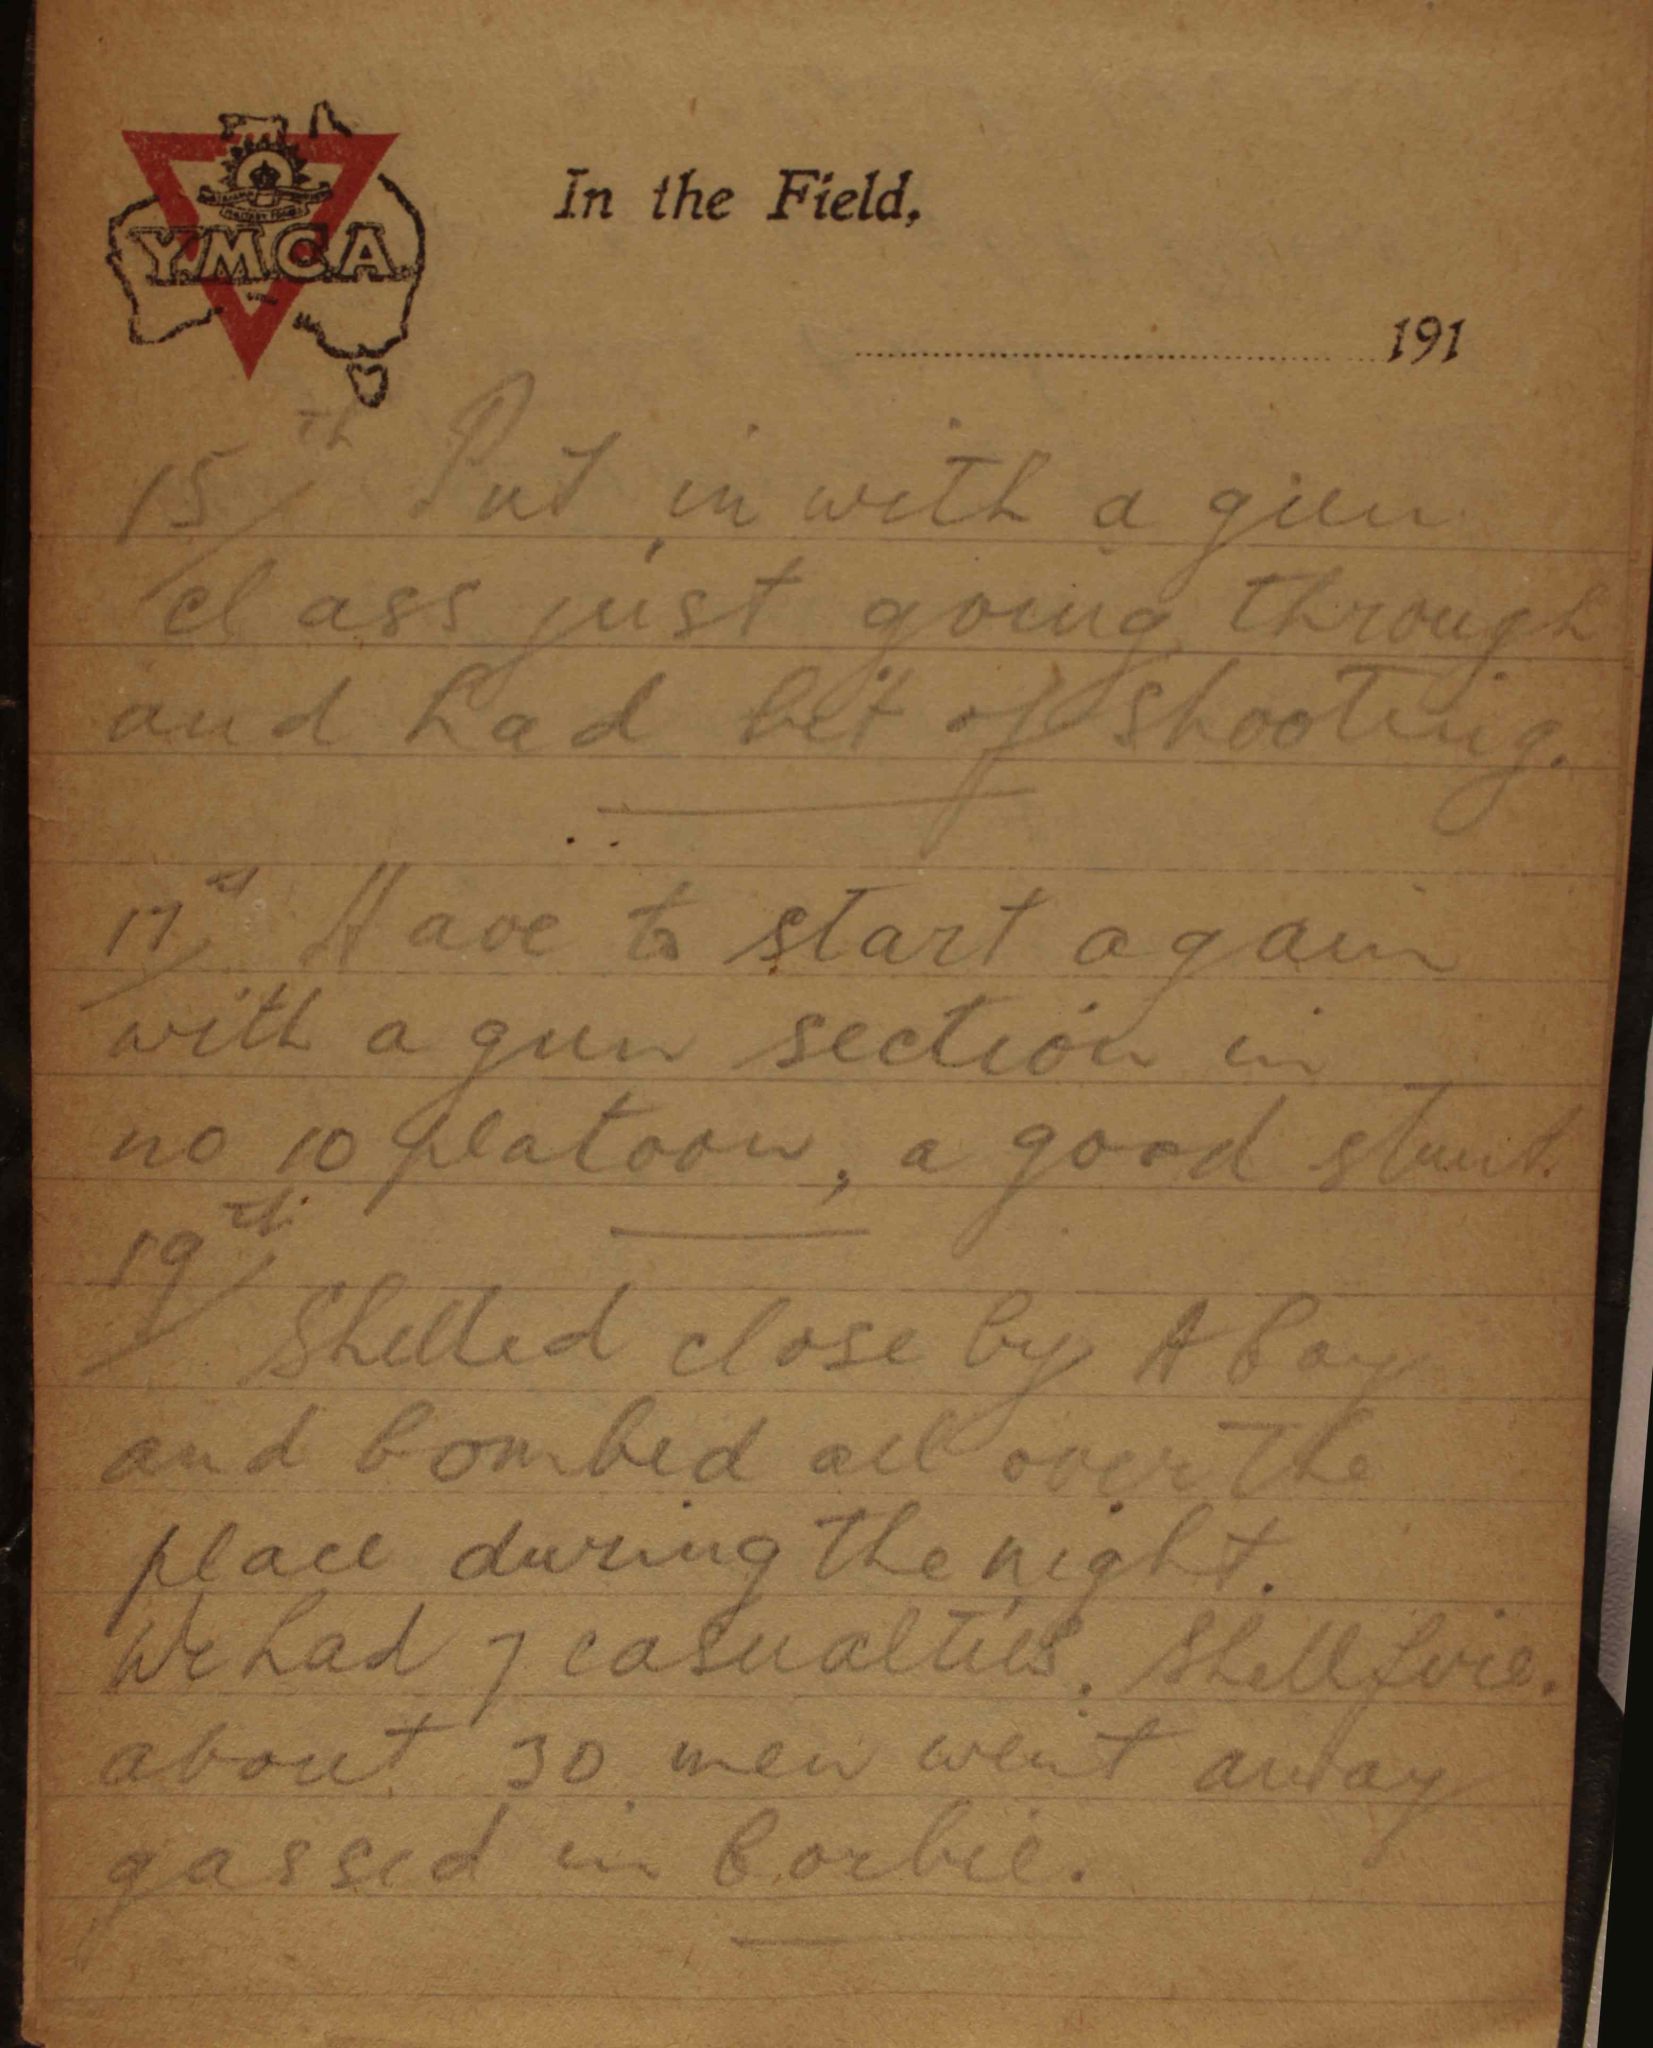 Y.M.C.A.
In the Field,
191
15th Put in with a gun
class just going through
and had bit of shooting.
17th Have to start again
with a gun section in
no 10 platoon, a good stunt.
19th
Shelled close by A Coy
and bombed all over the
place during the night.
We had 7 casualties. Shell fire.
about 30 men went away
gassed in Corbie.